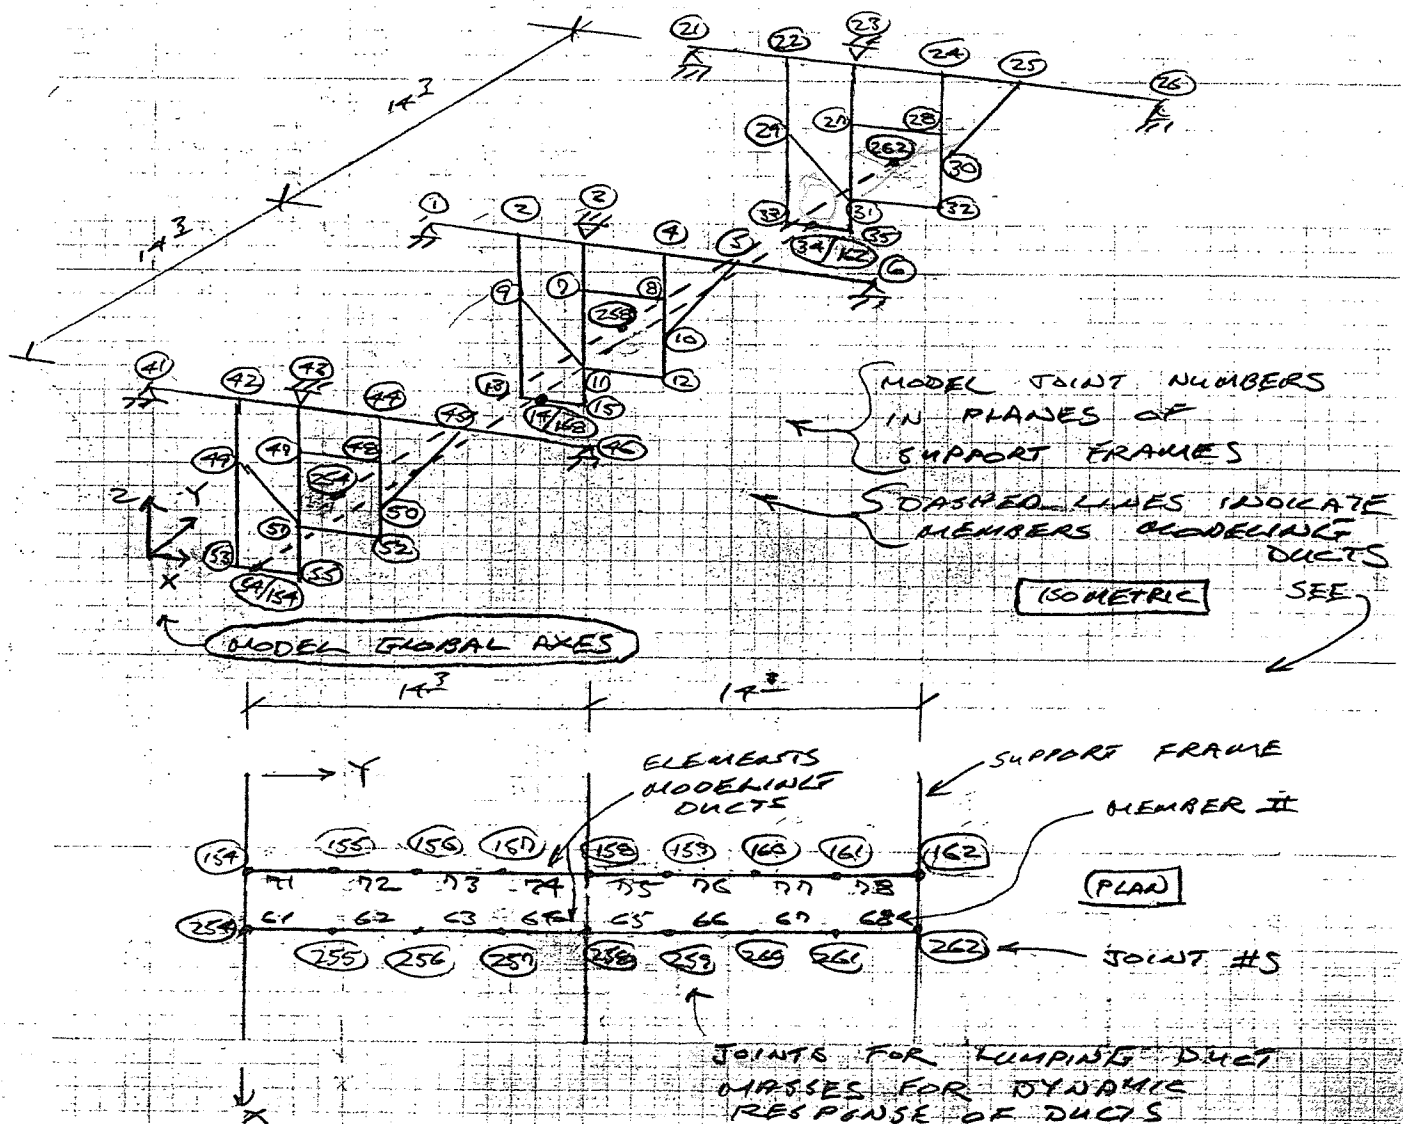 21
22
23
24
25
26
14 3
14 3
29
27
28
262
30
33
31
32
35
34/162
1
2
2
4
5
6
9
7
8
258
10
13
11
12
15
41
42
43
44
45
46
49
49
48
254
50
51
52
53
55
54/154
Z
Y
X
MODEL JOINT NUMBERS
IN PLANES OF
SUPPORT FRAMES
DASHED LINES INDICATE
MEMBERS MODELING
DUCTS
ISOMETRIC
SEE
MODEL GLOBAL AXES
14 3
Y
ELEMENTS
MODELING
DUCTS
SUPPORT FRAME
MEMBER #
154 155 156 157 158 159 160 161 162
71 72 73 74 75 76 77 78
PLAN
61 62 63 64 65 66 67 68
254 255 256 257 258 259 260 261 262
JOINT #S
X
JOINTS FOR LUMPING DUCT
MASSES FOR DYNAMIC
RESPONSE OF DUCTS